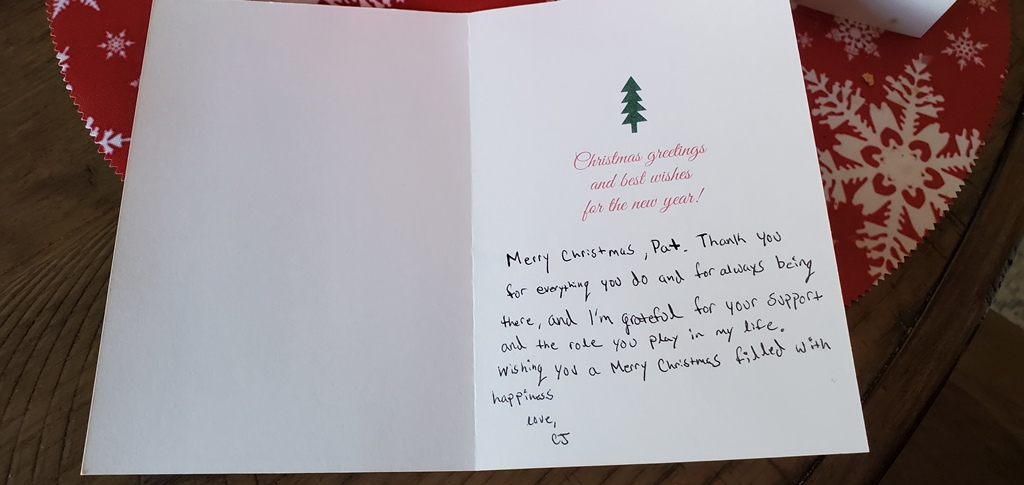 Christmas greetings
and best wishes
for the new year!
Merry Christmas, Pat. Thank you
for everything you do and for always being
there, and I'm grateful for your support
and the role you play in my life.
Wishing you a Merry Christmas filled with
happiness
Love,
CJ